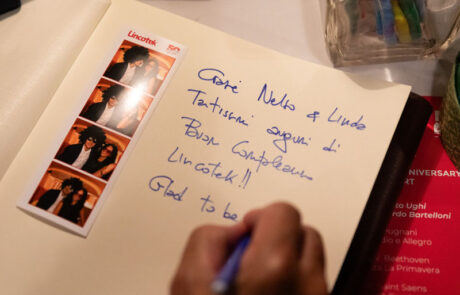 Lincotek
50
Cari Nelso & Linda
Tantissimi auguri di
Buon Compleanno
Lincotek!!
Glad to be
NNIVERSARY
RT
o Ughi
rdo Bartelloni
rugnani
dio e Allegro
Beethoven
ta La Primavera
Saint Saens